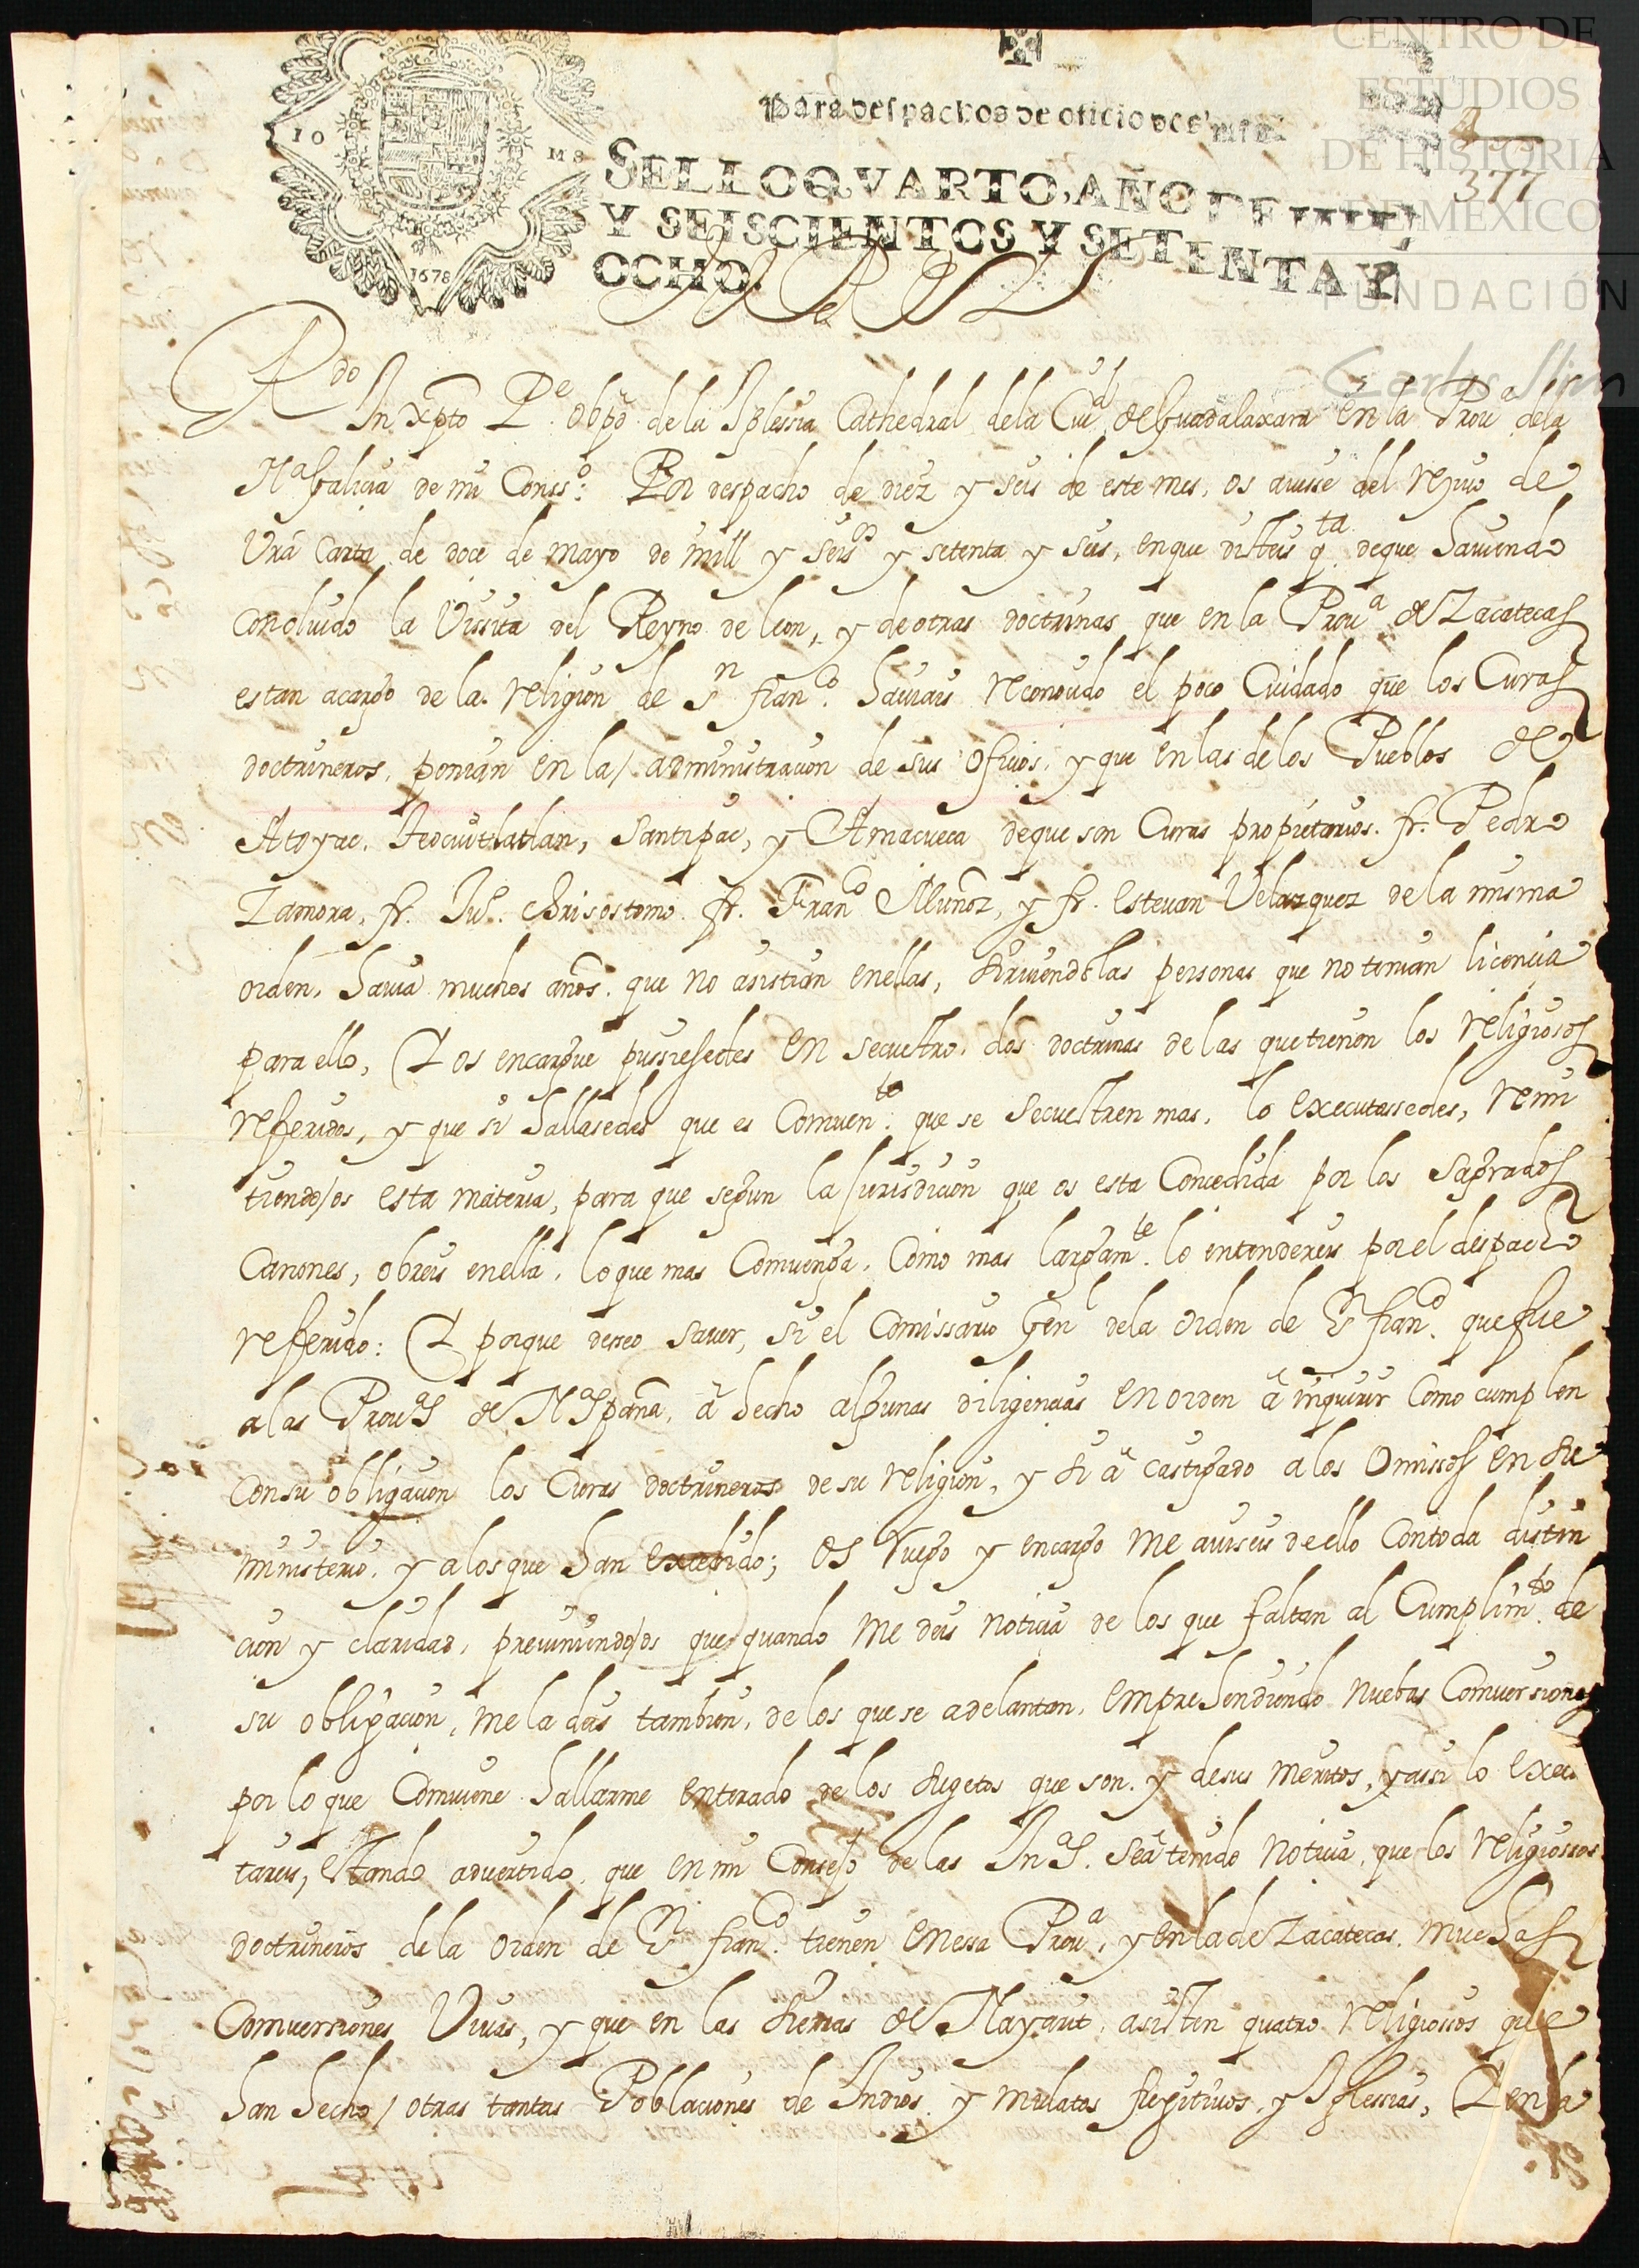 CENTRO DE
ESTUDIOS
DE HISTORIA
DE MEXICO
FUNDACIÓN
Carlos Slim
Para despachos de oficio dos mrs.
377
SELLO QVARTO, AÑO DE MIL
Y SEISCIENTOS Y SETENTA Y
OCHO.
1678
El Rey
Rdo In xpto Pe. Obpo de la Iglessia Cathedral de la Ciud de Guadalaxara en la Proua dela
Na Galicia de mi Consso: Por despacho de diez y seis de este mes, os auisse del reciuo de
Vrã Carta de doce de mayo de mill y seisos y setenta y seis, en que disteis qta de que hauiendo
concluido la Vissita del Reyno de leon, y de otras doctrinas que en la Proua de Zacatecas
estan acargo de la religion de sn franco. hauiais reconoçido el poco Cuidado que los Curas
doctrineros, ponian en la administraçion de sus ofiçios, y que en las de los Pueblos de
Atoyac, Teocuitlatlan, Santipac, y Amacueca de que son Curas propietarios fr. Pedro
Zamora, fr. Jua. chrisostomo fr. Franco Muñoz, y fr. Esteuan Velazquez de la misma
orden, hauia muchos años que no asistian en ellas, siruiendolas personas que no tenian licencia
para ello, Y os encargue pussiesedes en secuestro, dos doctrinas de las que tienen los religiosos
refferidos, y que si hallasedes que es Comuento. que se secuestren mas, lo executassedes, remi
tiendo os esta materia, para que segun la jurisdicion que os esta Concedida por los Sagrados
Canones, obreis en ella, lo que mas Comuenga, Como mas largamte. lo entendereis por el despacho
refferido: Y porque deseo sauer, si el Comissario Gen de la orden de Sn franco. que fue
a las Prouas de Na Spaña, â hecho algunas diligencias en orden â inquirir Como cumplen
con su obligaçion los Curas doctrineros de su religion, y si â castigado a los Omissos en su
ministerio, y a los que han excedido; os ruego y encargo me auiseis de ello Con toda distin
cion y claridad, preuiniendo os que quando me deis noticia de los que faltan al Cumplimto. de
su obligaçion, me la deis tambien, de los que se adelantan, emprehendiendo nuebas Comuersiones
por lo que Comuiene hallarme enterado de los sugetos que son, y de sus meritos, y assi lo execu
tareis, estando aduertido, que en mi Consejo de las Inas. se â tenido noticia, que los religiossos
doctrineros de la orden de Sn franco. tienen en essa Proua, y en la de Zacatecas, muchas
Comuerssiones Viuas, y que en las sierras de Nayarit, asisten quatro religiossos que
han hecho otras tantas Poblaciones de Indios y mulatos fugitiuos, y Iglessias, Y en la